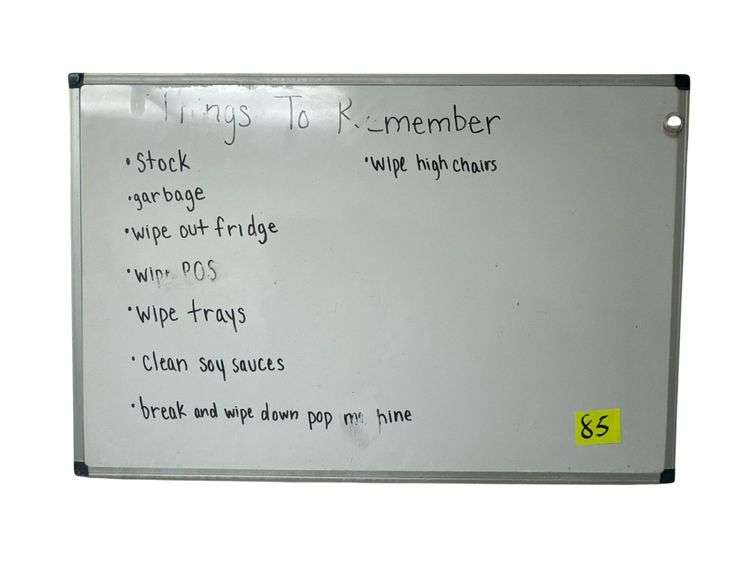 Things To Remember
• Stock
• garbage
• wipe out fridge
• wipe POS
• wipe trays
• clean soy sauces
• break and wipe down pop machine
• wipe high chairs
85